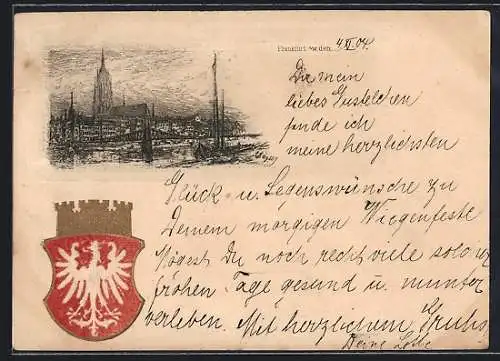 Frankfurt a/M den 4/XI.04.
Dir mein
liebes Gustelchen
sende ich
meine herzlichsten
Glück u. Segenswünsche zu
Deinem morgigen Wiegenfeste
Mögest Du noch recht viele solcher
frohen Tage gesund u. munter
verleben. Mit herzlichem Gruhs
Deine Lotte